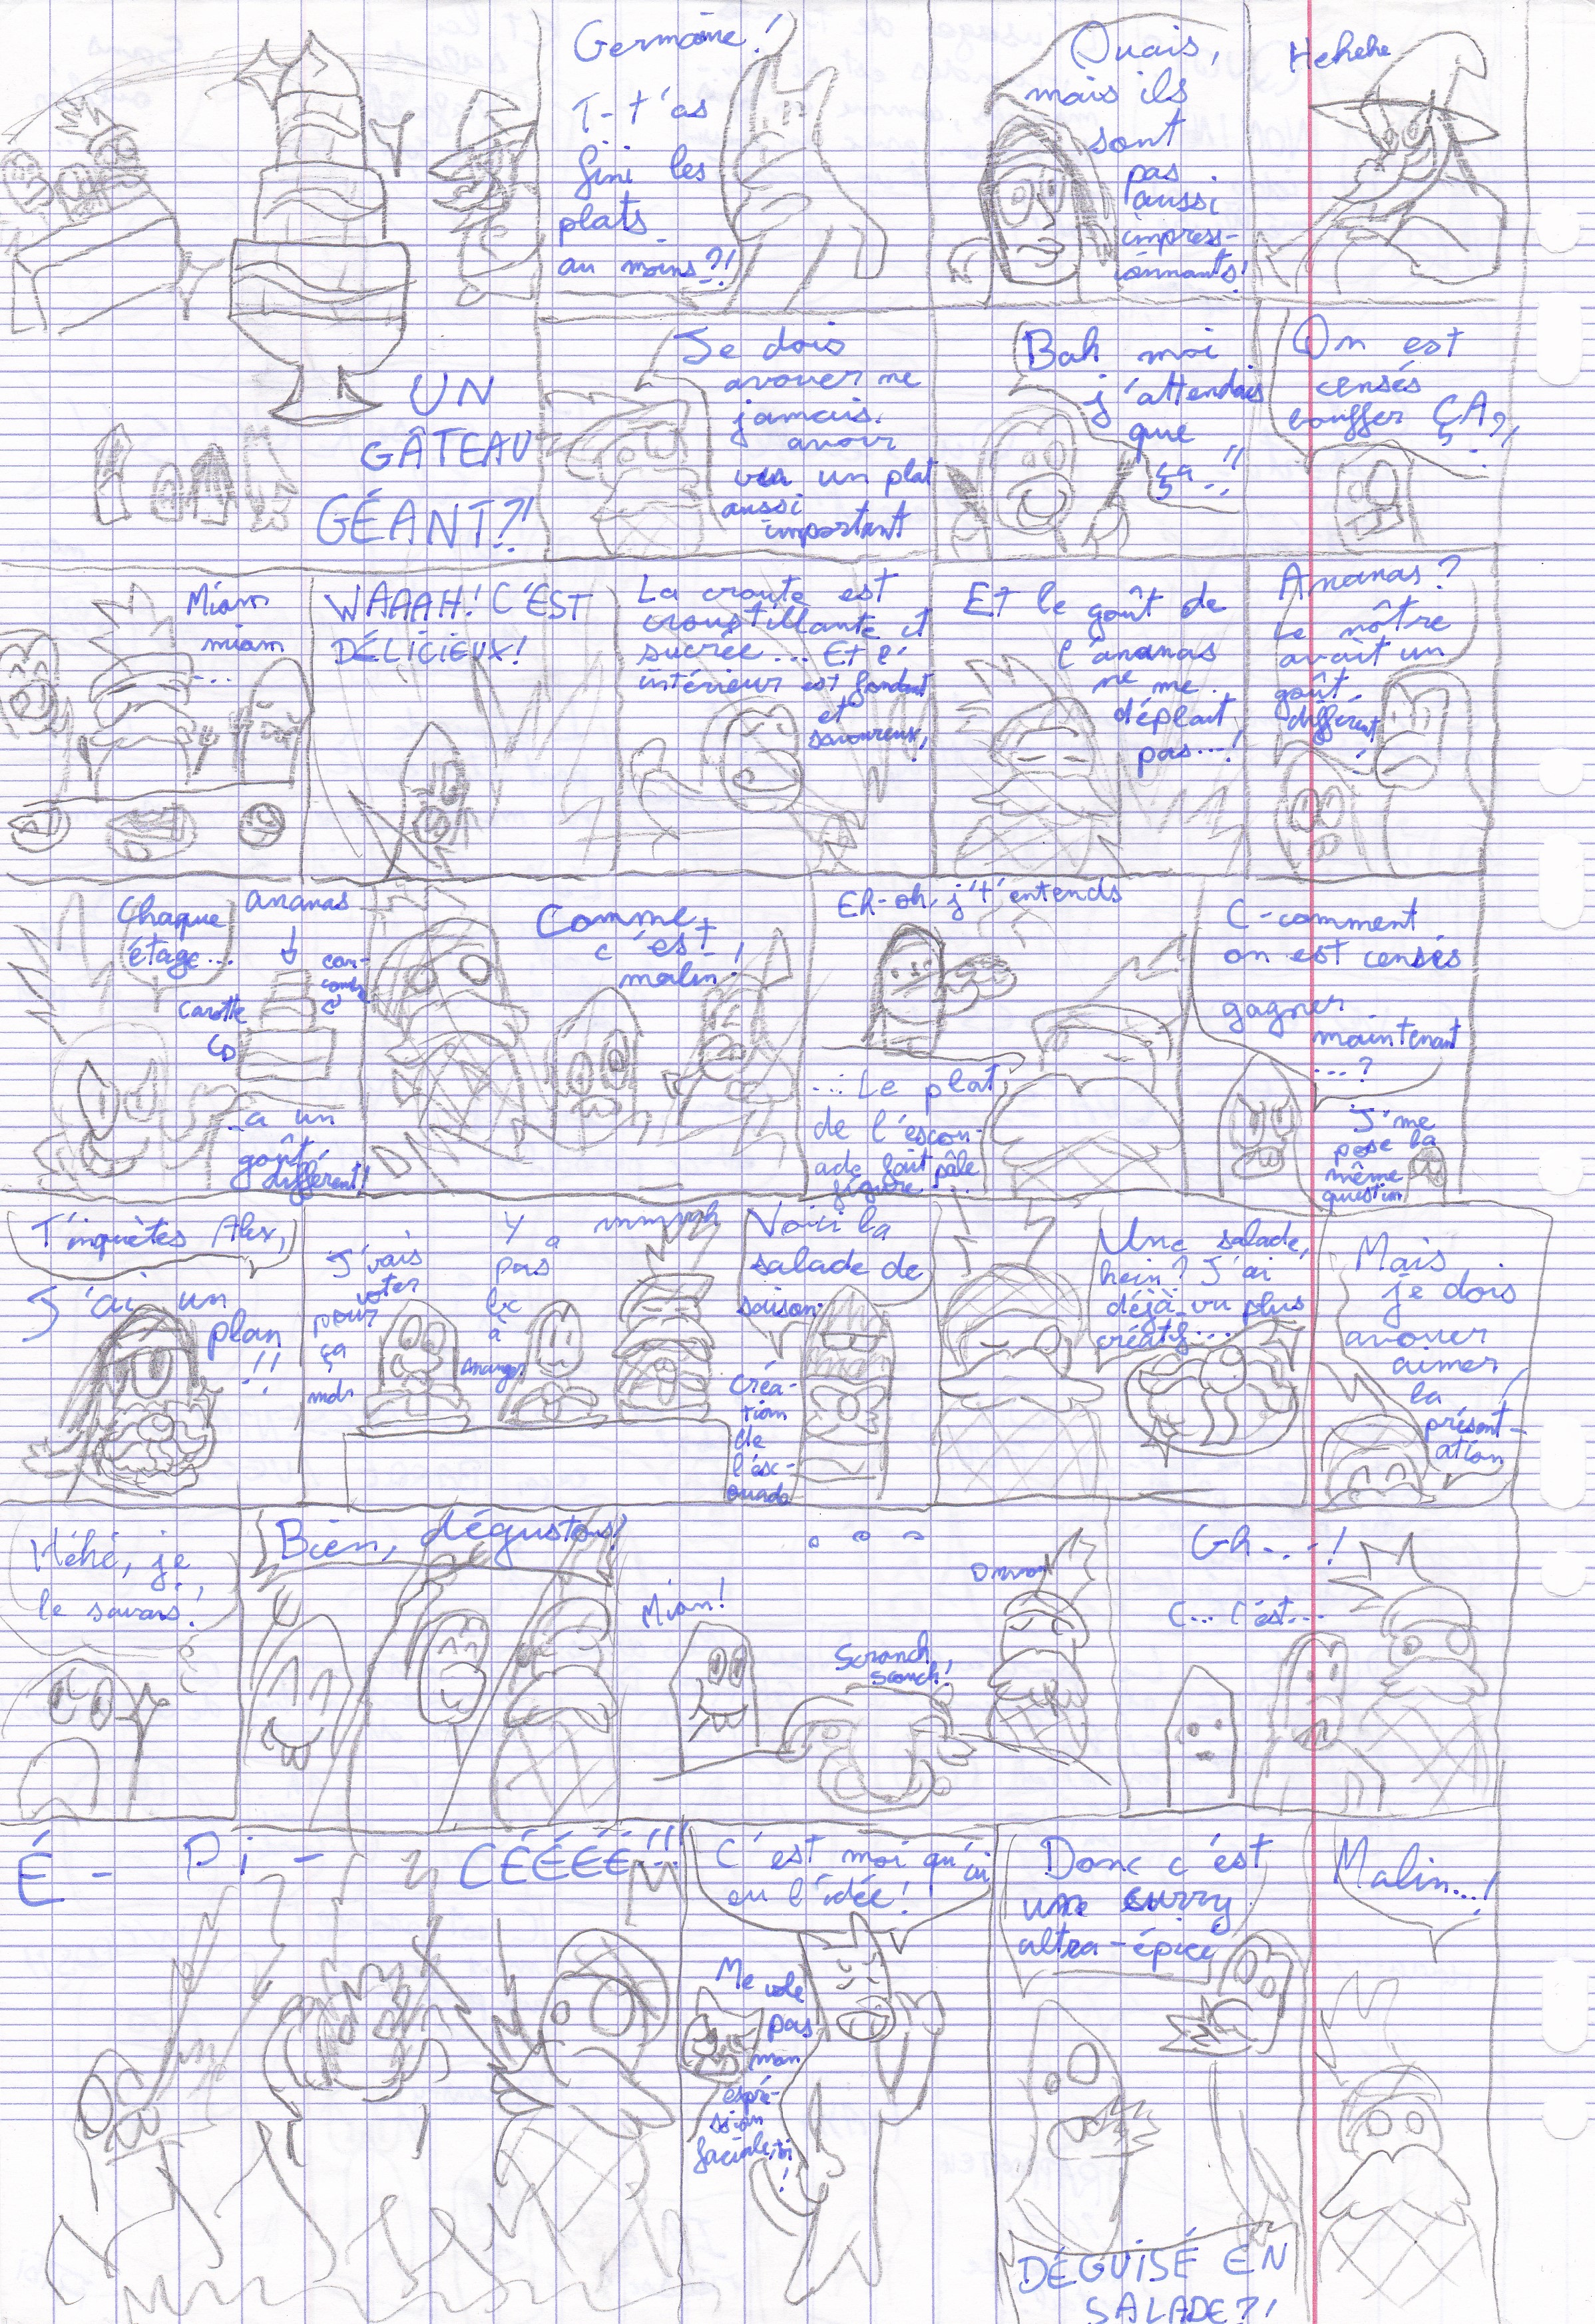 Germaine !
T-t'as
fini les
plats
au moins ?!
Ouais,
mais ils
sont
pas
aussi
impress-
ionnants !
Hehehe
UN
GÂTEAU
GÉANT?!
Je dois
avouer ne
jamais
avoir
vu un plat
aussi
important
Bah moi
j'attendais
que
ça !!
On est
censés
bouffer ÇA?!
Miam
miam
...
WAAAH! C'EST
DÉLICIEUX!
La croute est
croustillante et
sucrée... Et l'
intérieur est fondant
et
savoureux!
Et le goût de
l'ananas
ne me
déplait
pas...!
Ananas?
Le nôtre
avait un
goût
différent
!
Chaque
étage...
ananas
carotte
con-
combre
...a un
goût
différent!
Comme
c'est
malin!
Eh-oh, j't'entends
... Le plat
de l'escou-
ade fait pâle
figure...
C-comment
on est censés
gagner
maintenant
...?
J'me
pose la
même
question
T'inquiètes Alex,
J'ai un
plan
!!
J'vais
voter
pour
ça
mdr
Y a
pas
à
manger
Voici la
salade de
saison
Créa-
tion
de
l'esc-
ouade
Une salade,
hein? J'ai
déjà vu plus
créatif...
Mais
je dois
avouer
aimer
la
présent-
ation
Héhé, je
le savais!
Bien, dégustons!
...
Miam!
Scronch
scronch!
Gh...!
C... C'est...
É - Pi - CÉÉÉÉ!!
C'est moi qu'ai
eu l'idée!
Me vole
pas
mon
expre-
ssion
faciale, toi
!
Donc c'est
un curry
ultra-épicé
DÉGUISÉ EN
SALADE?!
Malin...!